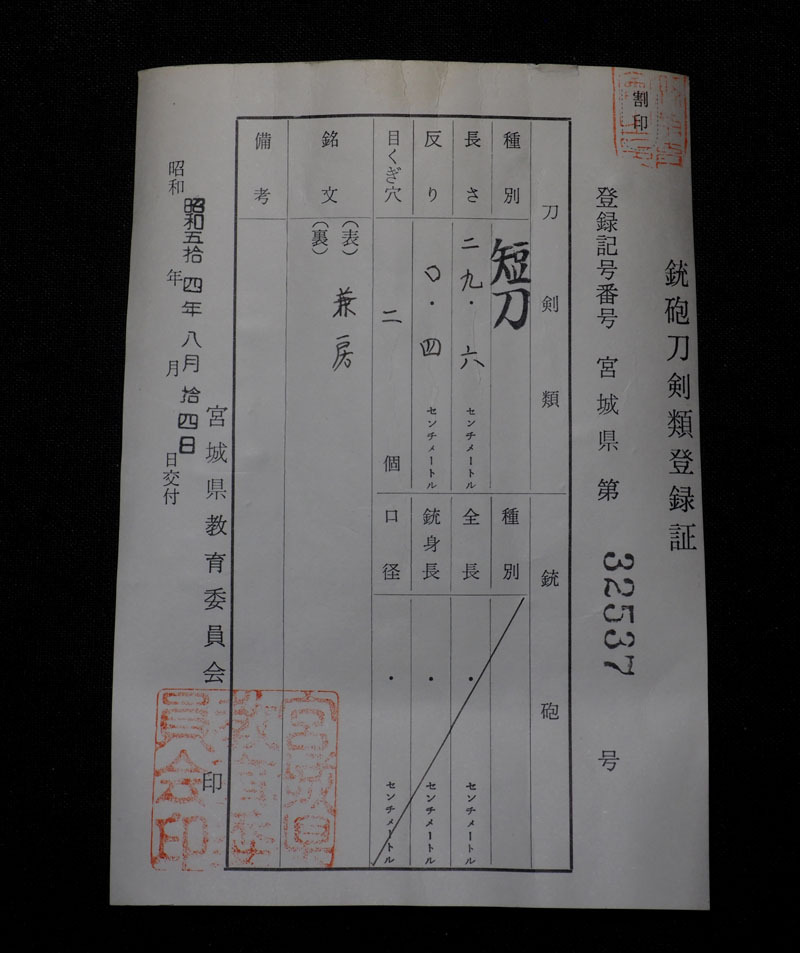 銃砲刀剣類登録証
割印
登録記号番号 宮城県 第 32537 号
刀剣類
種別 短刀
長さ 二九・六 センチメートル
反り 〇・四 センチメートル
目くぎ穴 二 個
銃砲
種別
全長 ・ センチメートル
銃身長 ・ センチメートル
口径 ・ センチメートル
銘文 (表) 兼房
(裏)
備考
宮城県教育委員会 印
宮城県
教育委
員会印
昭和 年 月 日交付
昭和五拾四年八月拾四日